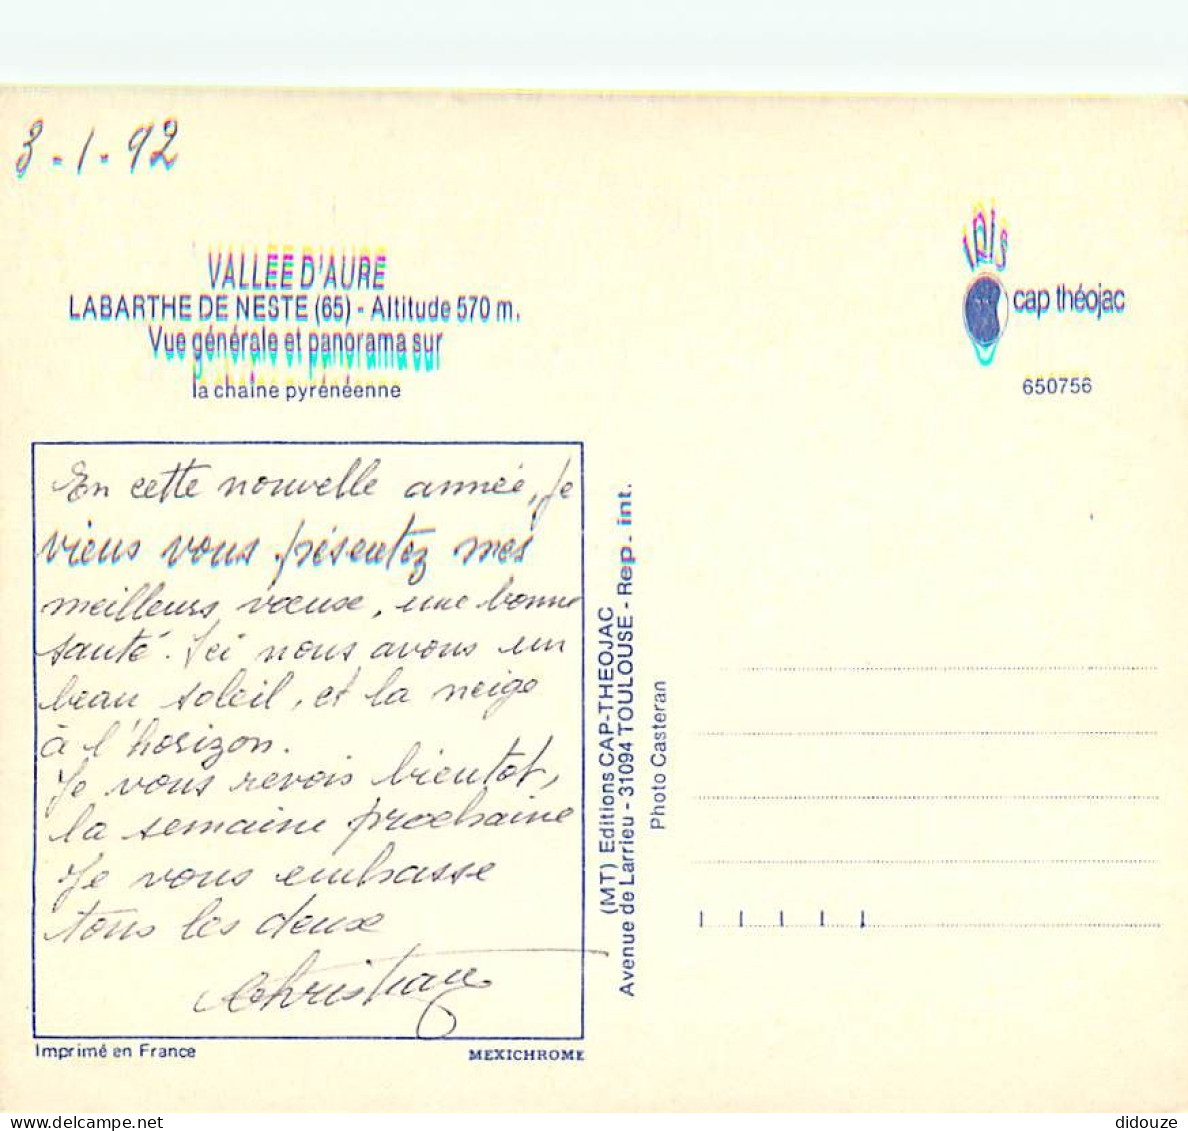 3-1-92
VALLÉE D'AURE
LABARTHE DE NESTE (65) - Altitude 570 m.
Vue générale et panorama sur
la chaîne pyrénéenne
iris
cap théojac
650756
En cette nouvelle année, Je
viens vous présentez mes
meilleurs vœuse, une bonne
santé. Ici nous avons un
beau soleil, et la neige
à l'horizon.
Je vous revois bientot,
la semaine prochaine
Je vous embasse
tous les deuse
Christian
Imprimé en France
MEXICHROME
(MT) Editions CAP-THEOJAC
Avenue de Larrieu - 31094 TOULOUSE - Rep. int.
Photo Casteran
delcampe.net
didouze